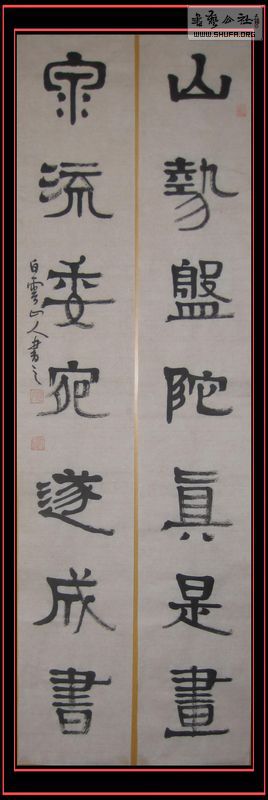 书艺公社
WWW.SHUFA.ORG
山勢盤陀真是畫
泉流委宛遂成書
白雲山人書之